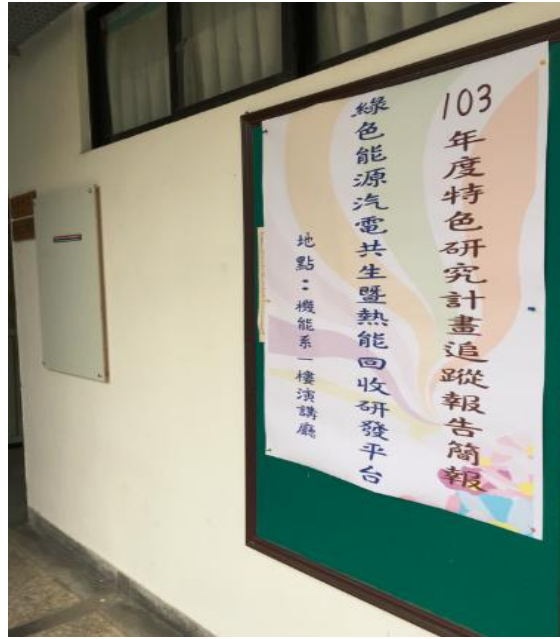 103年度特色研究計畫追蹤報告簡報
綠色能源汽電共生暨熱能回收研發平台
地點：機能系一樓演講廳